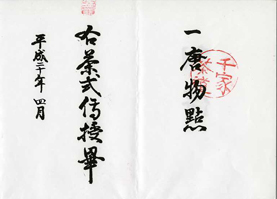 一唐物點
右茶式傳授畢
平成二十年 四月